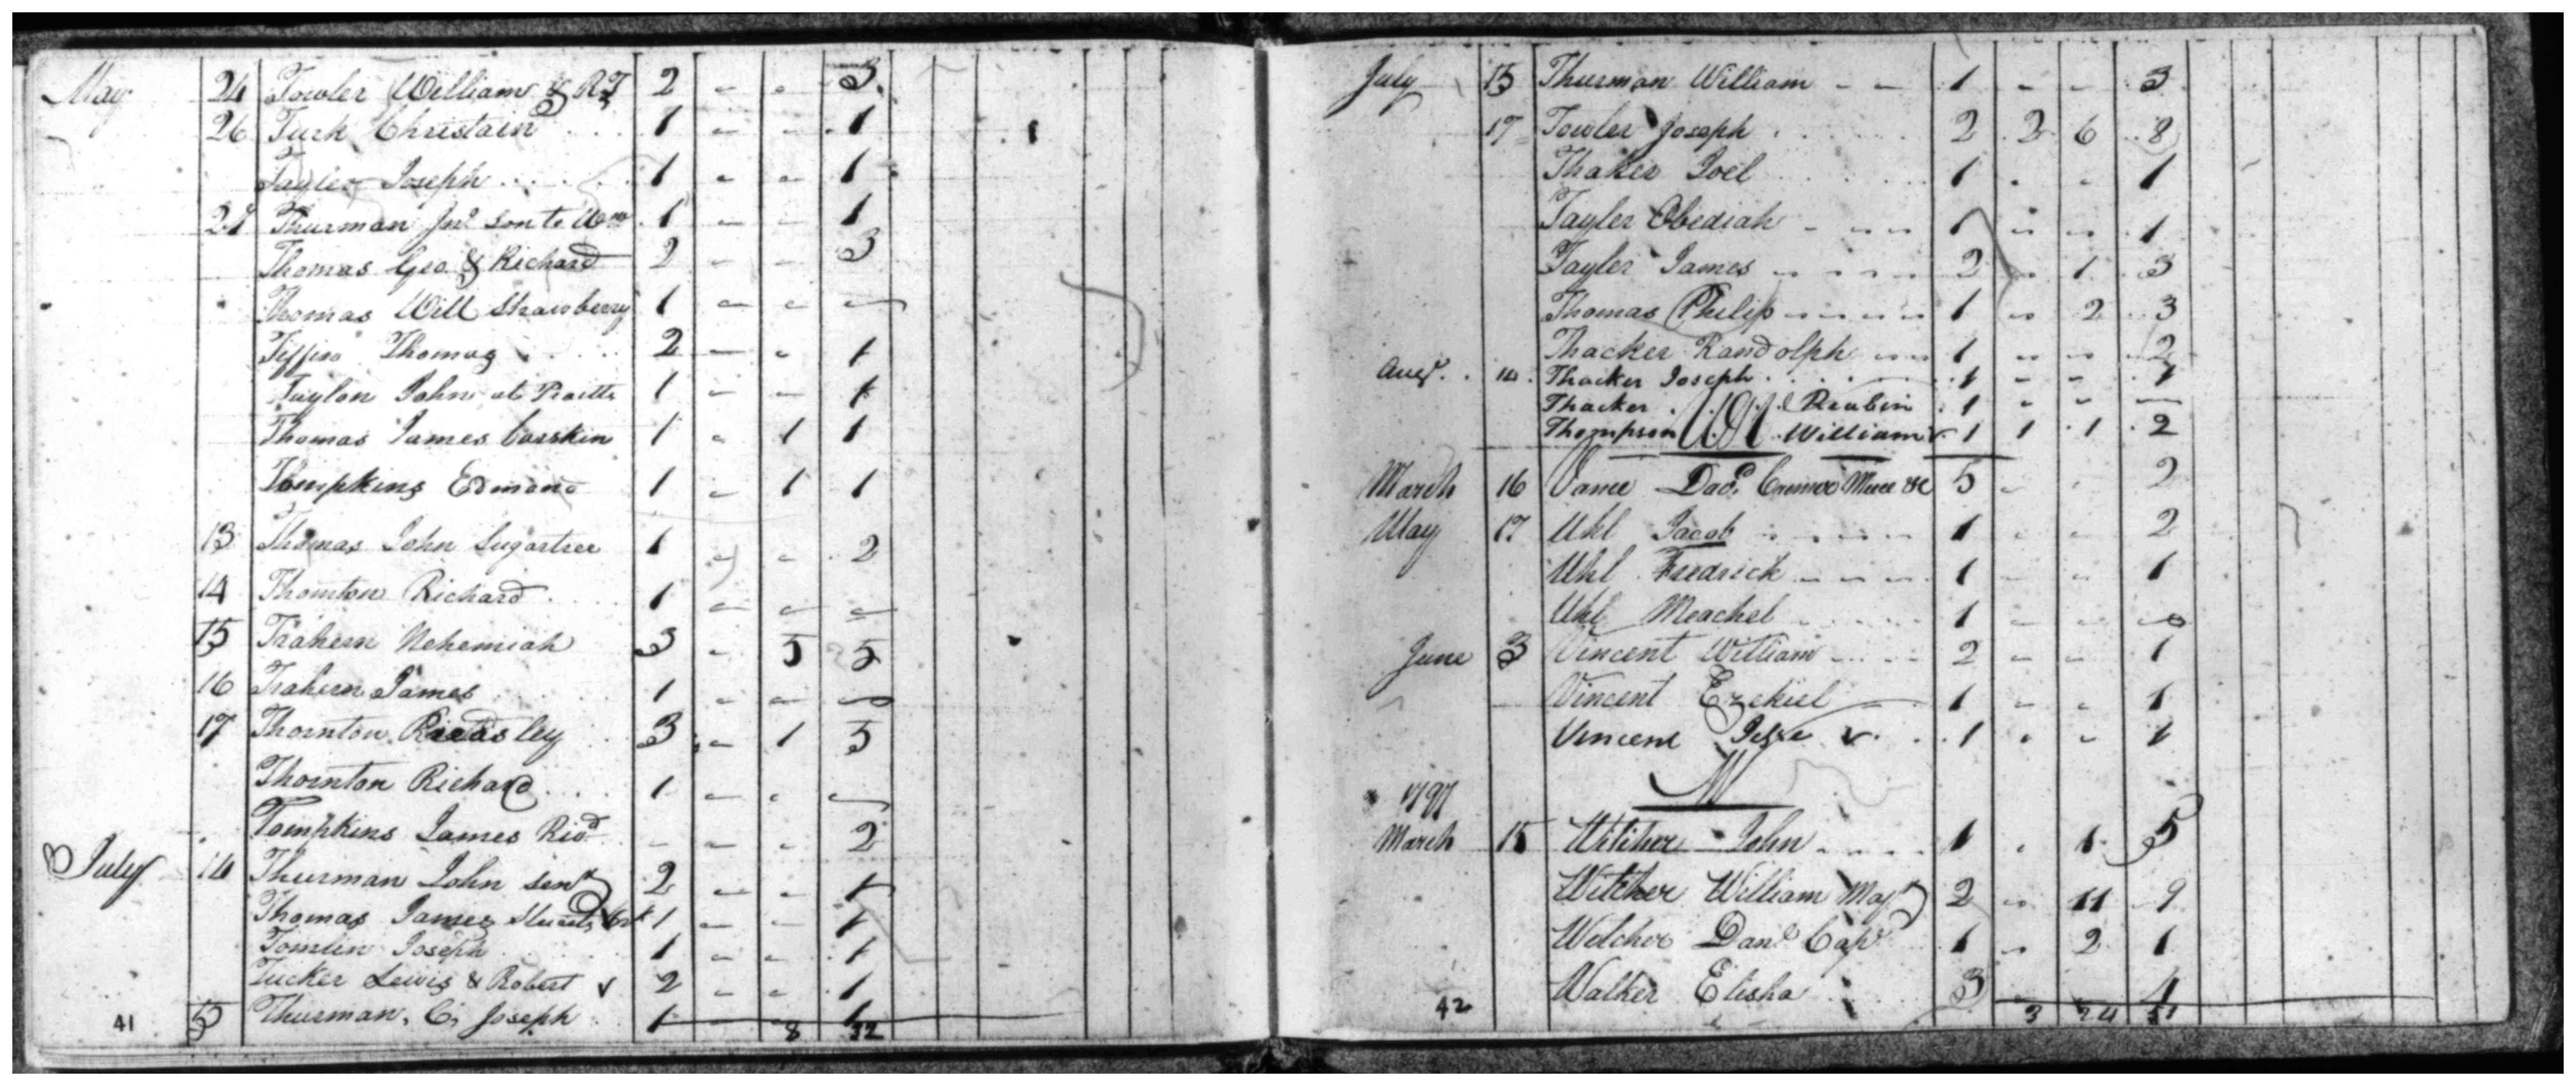 May 24 Towler William & RT 2 - - 3
26 Turk Christain 1 - - 1
Tayler Joseph 1 - - 1
Thurman Jnº son to Wm 1 - - 1
Thomas Geo & Richard 2 - - 3
Thomas Will Strawberry 1 - - -
Thomas 2 - - 1
Taylor John at 1 - - 1
Thomas James 1 - 1 1
Tompkins Edmond 1 - 1 1
13 Thomas John Sugartree 1 - - 2
14 Thornton Richard 1 - - -
15 Trahern Nehemiah 3 - 5 5
16 Trahern James 1 - - -
17 Thornton 3 - 1 5
Thornton Richard 1 - - -
Tompkins James - - - 2
July 14 Thurman John senr 2 - - 1
Thomas James 1 - - 1
Tomlin Joseph 1 - - 1
Tucker Lewis & Robert v 2 - - 1
15 Thurman, C. Joseph 1 - - 1
41 8 32
July 15 Thurman William - - 1 - - 3
17 Towler Joseph 2 2 6 8
Thaker Joel 1 - - 1
Tayler Obediah - - - 1 - - 1
Tayler James - - - - 2 - 1 3
Thomas Philip - - - - 1 - 2 3
Thacker Randolph - - 1 - - 2
Augt. 14 Thacker Joseph 1 - - 1
Thacker Reubin 1 - - -
Thompson William v 1 1 1 2
March 16 Vance 5 - - 2
May 17 Uhl Jacob 1 - - 2
Uhl Fredrick 1 - - 1
Uhl Meachel 1 - - -
June 3 Vincent William 2 - - 1
Vincent Ezekiel 1 - - 1
Vincent Jesse v 1 - - 1
W
1797
March 15 Witcher John 1 - 1 5
Witcher William Majr 2 - 11 9
Witcher Danl Capt 1 - 2 1
Walker Elisha 3 4
42 3 24 51